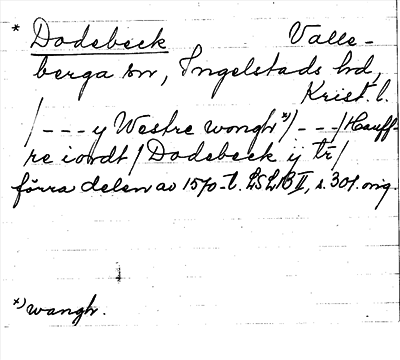 * Dodebeck Valle-
berga sn, Ingelstads hd,
Krist. l.
/ - - - y Westre wongh *)/ - - - / Hauff-
re iordt / Dodebeck ij tr /
förra delen av 1570-t. LSLB II, s. 301. orig.
*) wangh.